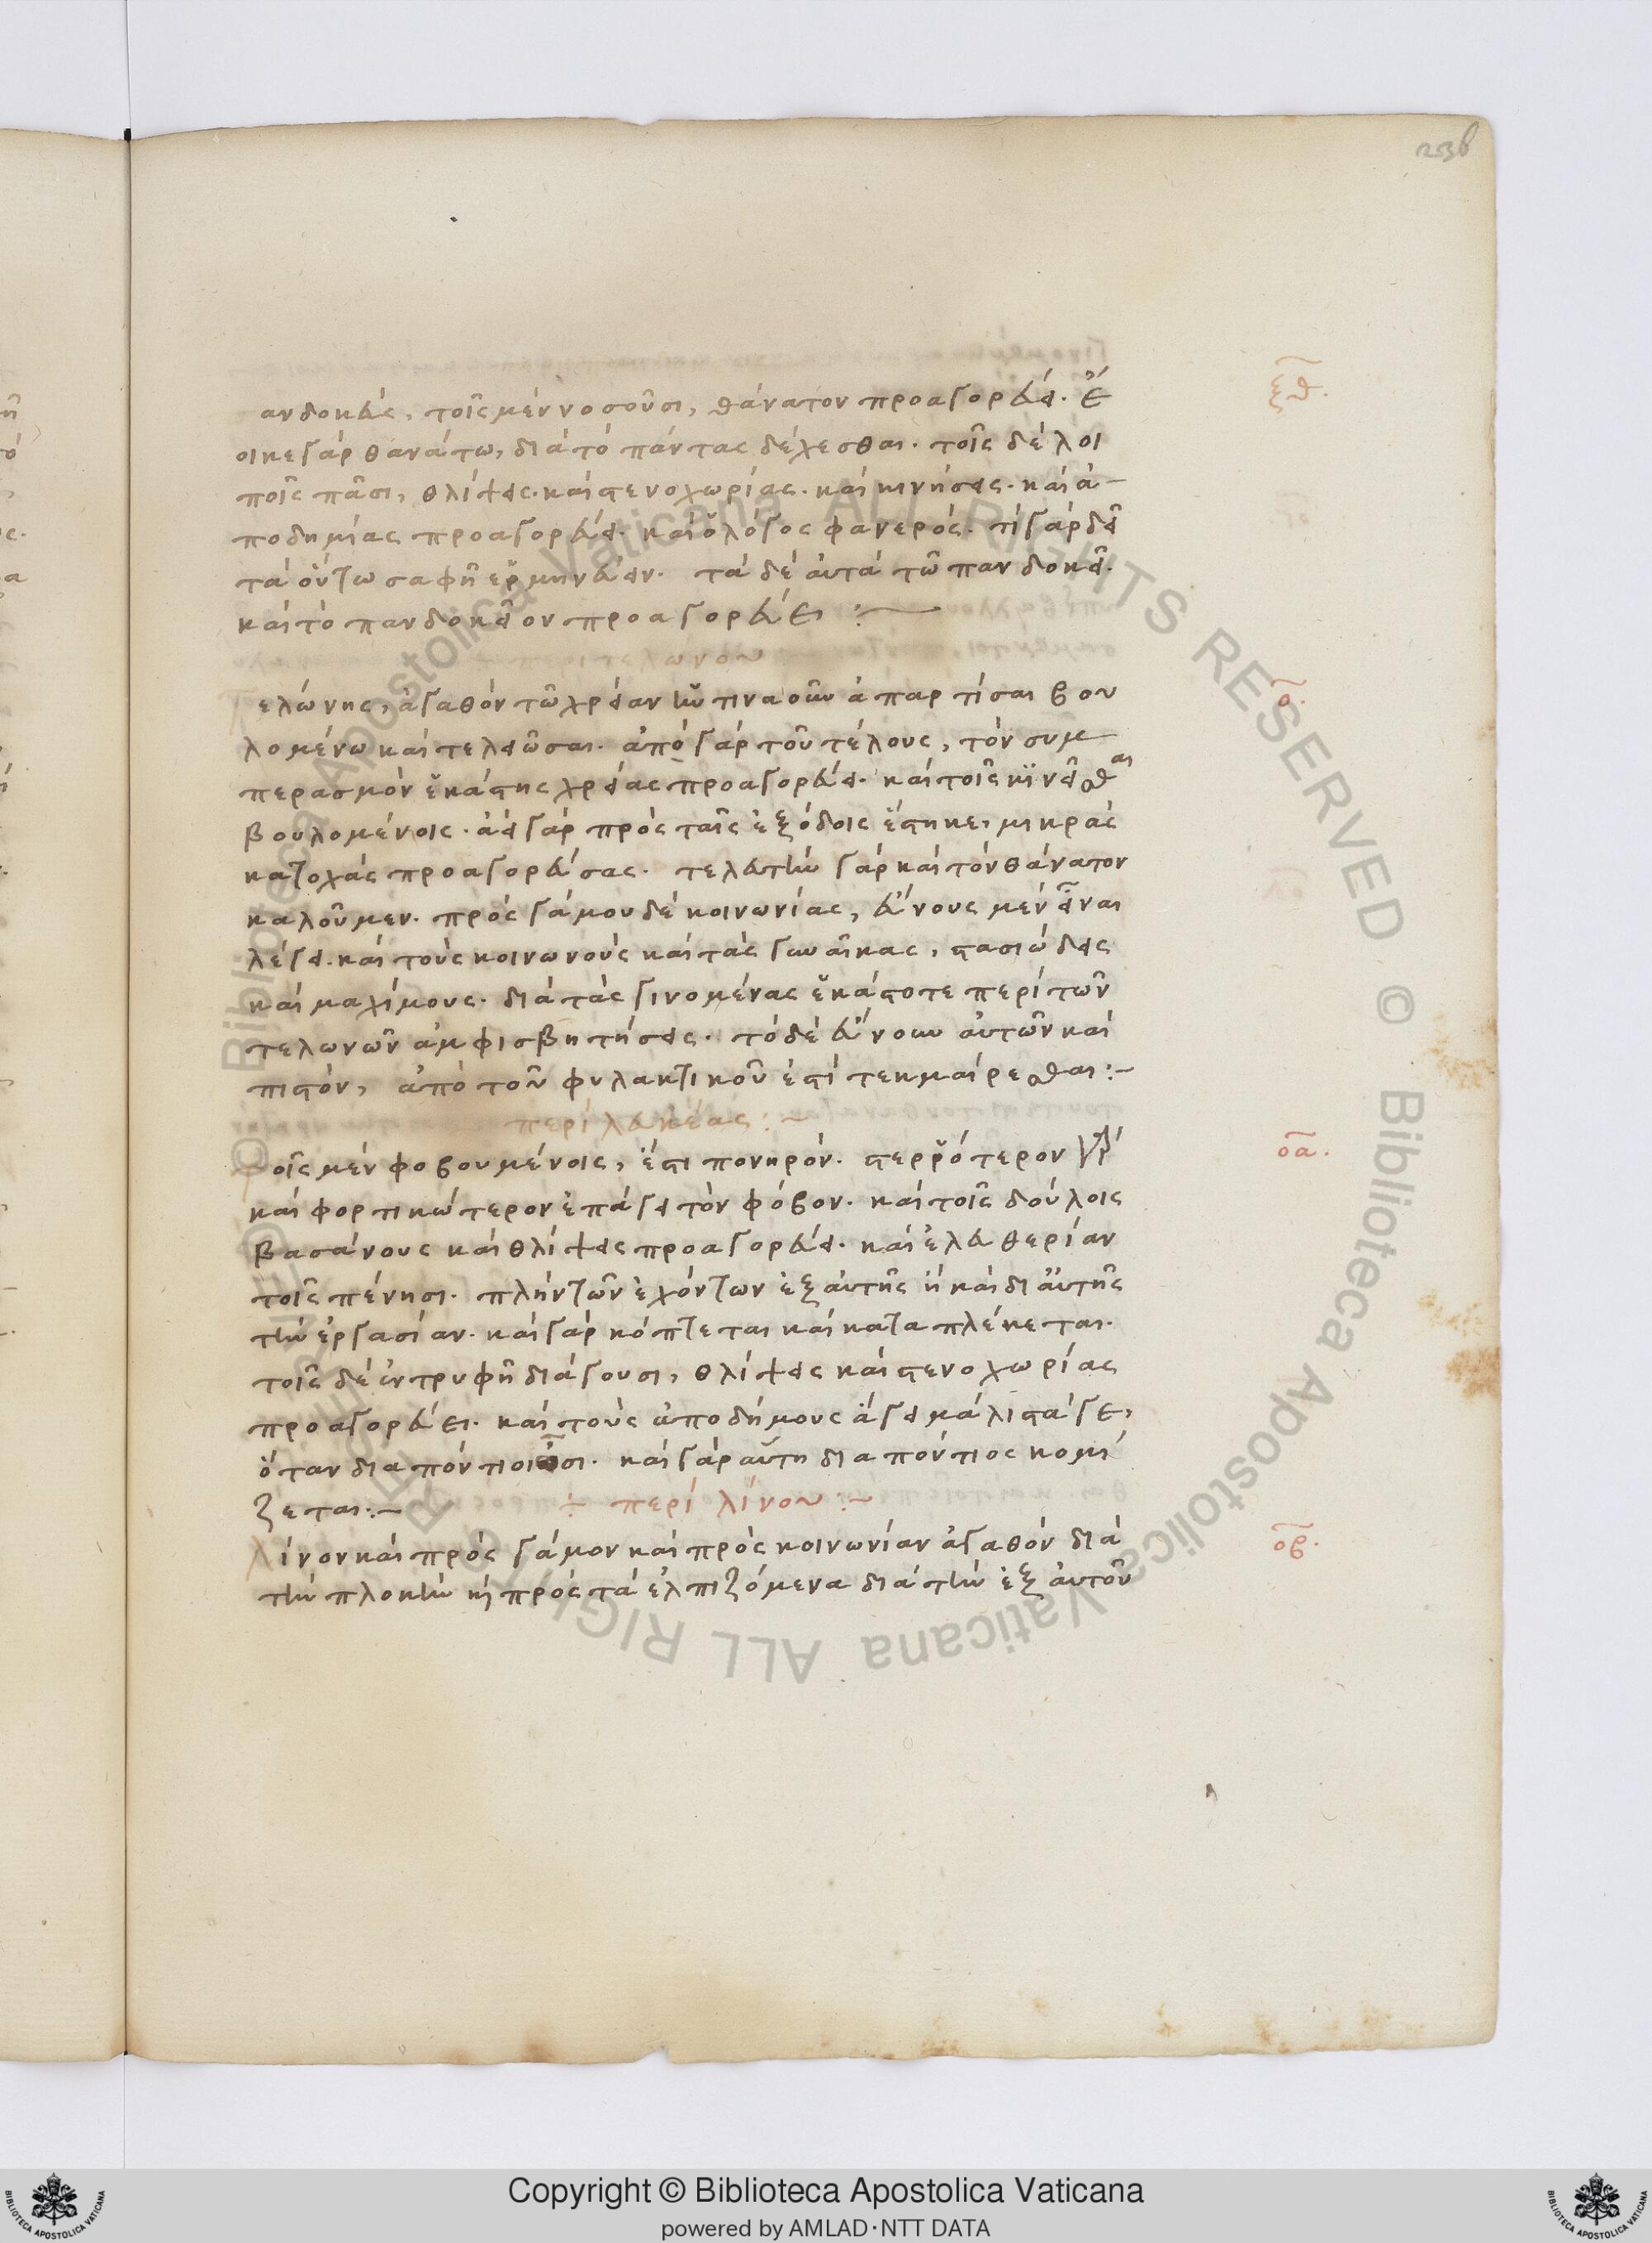 236
ξθ.
ανδοκεὺς, τοῖς μὲν νοσοῦσι, θάνατον προαγορεύει. ἔ
οικε γὰρ θανάτω, διὰ τὸ πάντας δέχεσθαι. τοῖς δὲ λοι
ποῖς πᾶσι, θλίψεις. καὶ στενοχωρίας. καὶ κινήσεις. καὶ ἀ-
ποδημίας προαγορεύει. καὶ ὁ λόγος φανερός. τί γὰρ δεῖ
τὰ οὕτω σαφῆ ἑρμηνεύειν. τὰ δὲ ἀυτὰ τῶ πανδοκεῖ.
καὶ τὸ πανδοκεῖον προαγορεύει :
περι τελωνου
ο.
τελώνης, ἀγαθὸν τῶ χρείαν ἥντινα οὖν ἀπαρτίσαι βου
λομένω καὶ τελειῶσαι. ἀπὸ γὰρ τοῦ τέλους, τὸν συμ
περασμὸν ἑκάστης χρείας προαγορεύει. καὶ τοῖς κινεῖσθαι
βουλομένοις. ἀεὶ γὰρ πρὸς ταῖς ἐξόδοις ἕστηκε, μικρὰς
κατοχὰς προαγορεύσας. τελευτὴν γὰρ καὶ τὸν θάνατον
καλοῦμεν. πρὸς γάμου δὲ κοινωνίας, εὔνους μὲν εἶναι
λέγει. καὶ τοὺς κοινωνοὺς καὶ τὰς γυναῖκας, στασιώδεις
καὶ μαχίμους. διὰ τὰς γινομένας ἑκάστοτε περὶ τῶν
τελωνῶν ἀμφισβητήσεις. τὸ δὲ εὔνουν ἀυτῶν καὶ
πιστὸν, ἀπὸ τοῦ φυλακτικοῦ ἐστὶ τεκμαίρεσθαι :-
περὶ λευκέας :-
οα.
τοῖς μὲν φοβουμένοις, ἐστι πονηρόν. στερρότερον γὰρ
καὶ φορτικώτερον ἐπάγει τὸν φόβον. καὶ τοῖς δούλοις
βασάνους καὶ θλίψεις προαγορεύει. καὶ ἐλευθερίαν
τοῖς πένησι. πλὴν τῶν ἐχόντων ἐξ ἀυτῆς ἢ καὶ δι ἀυτῆς
τὴν ἐργασίαν. καὶ γὰρ κόπτεται καὶ καταπλέκεται.
τοῖς δὲ ἐν τρυφῆ διάγουσι, θλίψεις καὶ στενοχωρίας
προαγορεύει. καὶ τοὺς ἀποδήμους ἄγει μάλιστά γε,
ὅταν διαπόντιοι ὦσι. καὶ γὰρ αὕτη διαπόντιος κομί
ζεται :- ÷ περὶ λίνου :-
οβ.
λίνον καὶ πρὸς γάμον καὶ πρὸς κοινωνίαν ἀγαθὸν διὰ
τὴν πλοκὴν κὴ πρὸς τὰ ἐλπιζόμενα διὰ τὴν ἐξ ἀυτοῦ
© Biblioteca Apostolica Vaticana ALL RIGHTS RESERVED © Biblioteca Apostolica Vaticana ALL RIGHTS RESERVED
Copyright © Biblioteca Apostolica Vaticana
powered by AMLAD·NTT DATA
BIBLIOTECA APOSTOLICA VATICANA
BIBLIOTECA APOSTOLICA VATICANA